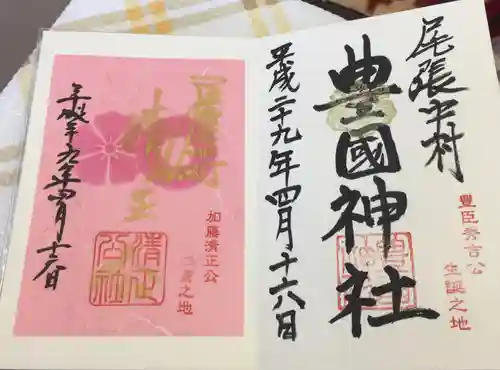 尾張中村
豐臣秀吉公
生誕之地
豊國神社
平成二十九年四月十六日
加藤清正公
生誕之地
清正公社
平成廿九年四月十六日